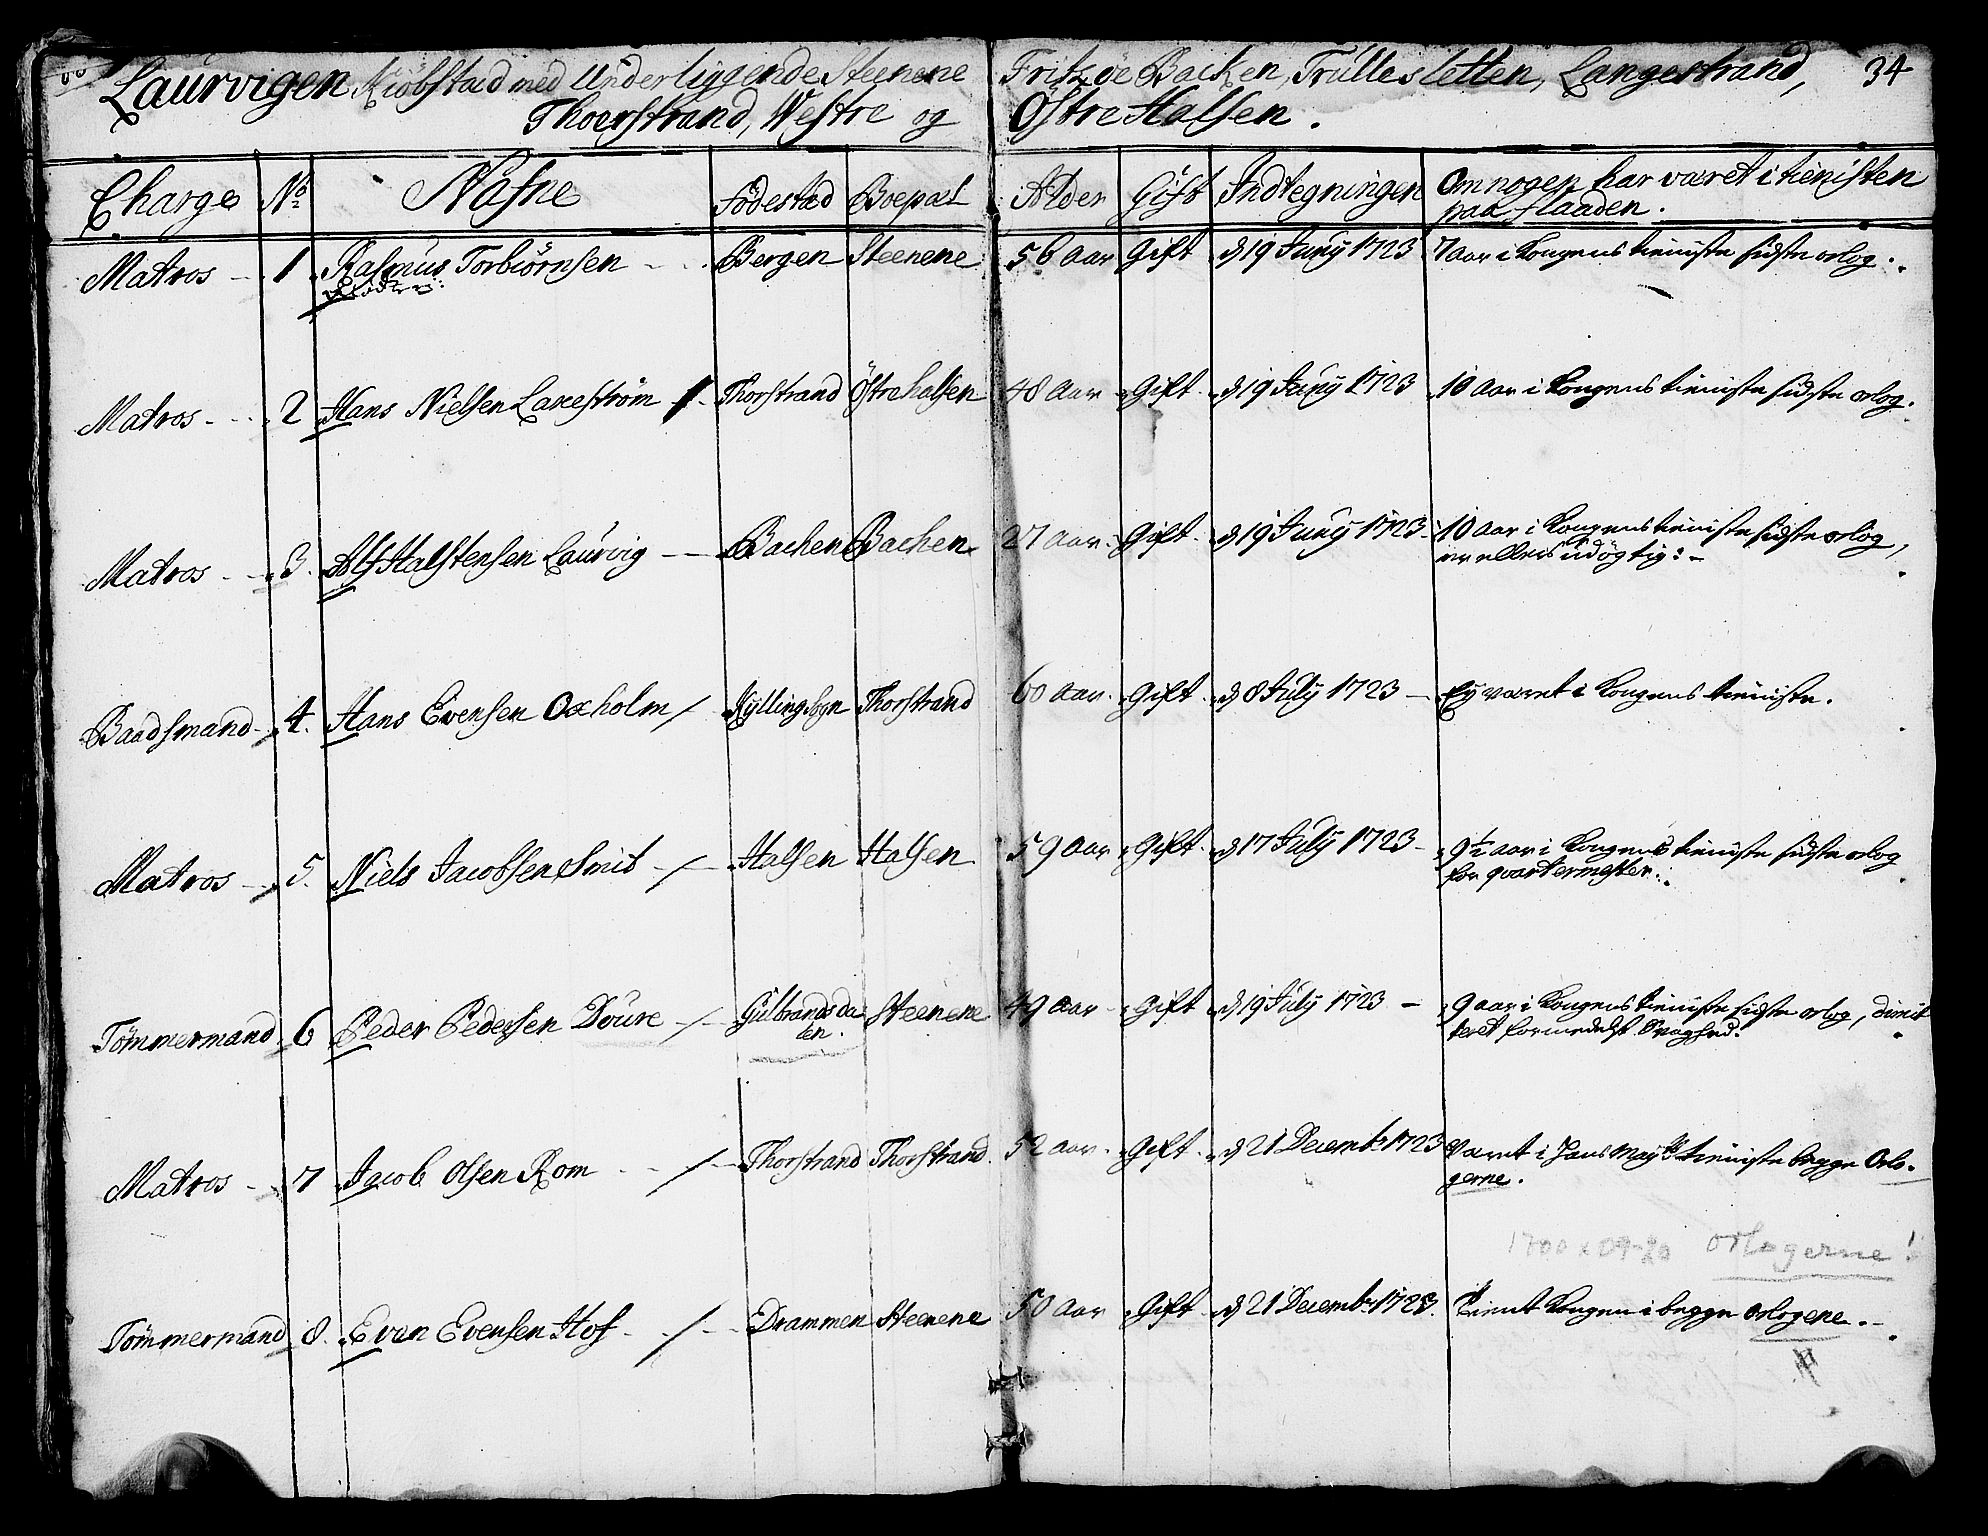 Laurvigen Kiöbstæd med Underliggende Steenene Fritzöe Backen, Trullesletten, Langestrand, 34
Thoerstrand, Westre og Östre Halsen.
Charge No Nafne Födestæd Boepæl Alder Gift Indtegningen Om nogen har været i tienisten
paa flaaden.
Matros 1 Rasmus Torbiörnsen Bergen Steenene 56 aar Gift d 19 Juny 1723 7 aar i Kongens tieniste sidste orlog.
Matros 2 Hans Nielsen Laxeström Thorstrand Östrehalsen 48 aar Gift d 19 Juny 1723 10 aar i Kongens tieniste sidste orlog.
Matros 3. Alf Halstensen Laurvig Bachen Bachen 27 aar Gift d 19 Juny 1723 10 aar i Kongens tieniste sidste orlog,
er ellers udögtig:
Baadsmand 4. Hans Evensen Oxholm Kyllingsogn Thorstrand 60 aar Gift d 8 July 1723 Ey været i Kongens tieniste.
Matros 5. Niels Jacobsen Smit Halsen Halsen 59 aar Gift d 17 July 1723 9½ aar i Kongens tieniste sidste orlog
for quartermester.
Tömmermand 6 Peder Pedersen Doure Gulbrandsda Steenene 49 aar Gift d 19 July 1723 9 aar i Kongens tieniste sidste orlog, dimit
len. teret formedelst Svaghed.
Matros 7 Jacob Olsen Rom Thorstrand Thorstrand 52 aar Gift d 21 Decemb: 1723 Været i Hans May:ts tieniste begge Orlo-
gerne.
1700 & 09-20 orlogerne!
Tömmermand 8. Even Evensen Hof Drammen Steenene 50 aar Gift d 21 Decemb: 1723. Tient Kongen i begge orlogene.